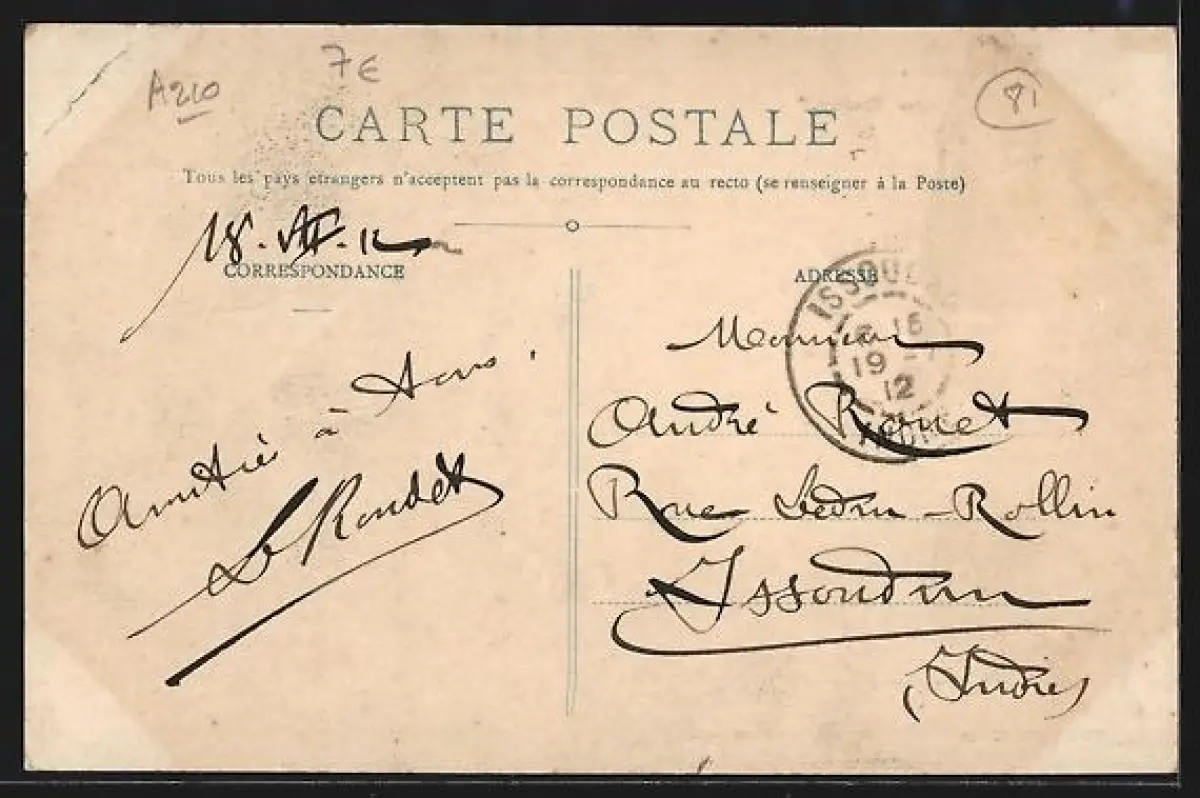 A210
7€
81
CARTE POSTALE
Tous les pays étrangers n'acceptent pas la correspondance au recto (se renseigner à la Poste)
18. VII. 12
CORRESPONDANCE
Amitiés à tous.
ADRESSE
ISSOUDUN
19 - 7
12
INDRE
Monsieur
André
Rue Ledru-Rollin
Issoudun
(Indre)